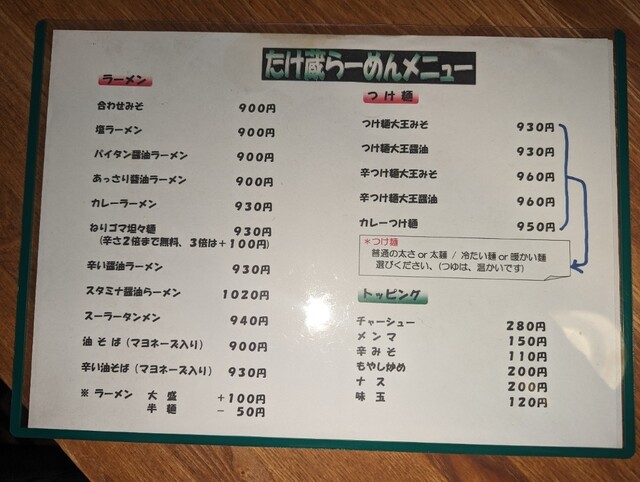 たけ蔵らーめんメニュー
ラーメン
合わせみそ 900円
塩ラーメン 900円
パイタン醤油ラーメン 900円
あっさり醤油ラーメン 900円
カレーラーメン 930円
ねりゴマ坦々麺 930円
(辛さ2倍まで無料、3倍は+100円)
辛い醤油ラーメン 930円
スタミナ醤油らーメン 1020円
スーラータンメン 940円
油そば(マヨネーズ入り) 900円
辛い油そば(マヨネーズ入り) 930円
※ ラーメン 大盛 +100円
半麺 - 50円
つけ麺
つけ麺大王みそ 930円
つけ麺大王醤油 930円
辛つけ麺大王みそ 960円
辛つけ麺大王醤油 960円
カレーつけ麺 950円
*つけ麺
普通の太さ or 太麺 / 冷たい麺 or 暖かい麺
選びください、(つゆは、温かいです)
トッピング
チャーシュー 280円
メンマ 150円
辛みそ 110円
もやし炒め 200円
ナス 200円
味玉 120円